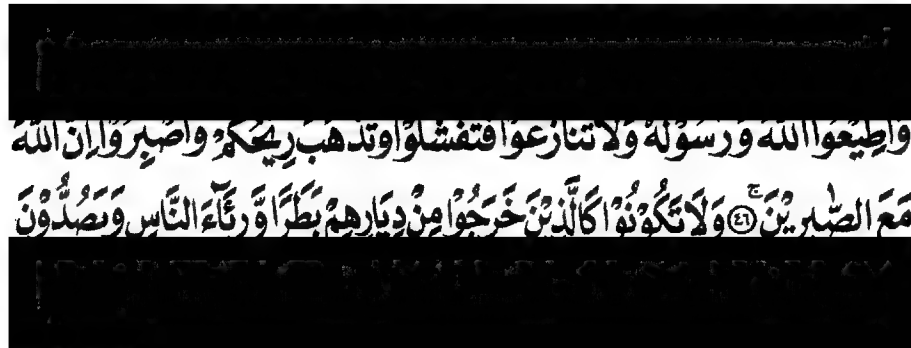 وَاَطِيْعُوا اللّٰهَ وَرَسُوْلَهٗ وَلَا تَنَازَعُوْا فَتَفْشَلُوْا وَتَذْهَبَ رِيْحُكُمْ وَاصْبِرُوْا اِنَّ اللّٰهَ
مَعَ الصّٰبِرِيْنَ ۚ﴿٤٦﴾ وَلَا تَكُوْنُوْا كَالَّذِيْنَ خَرَجُوْا مِنْ دِيَارِهِمْ بَطَرًا وَّرِئَآءَ النَّاسِ وَيَصُدُّوْنَ